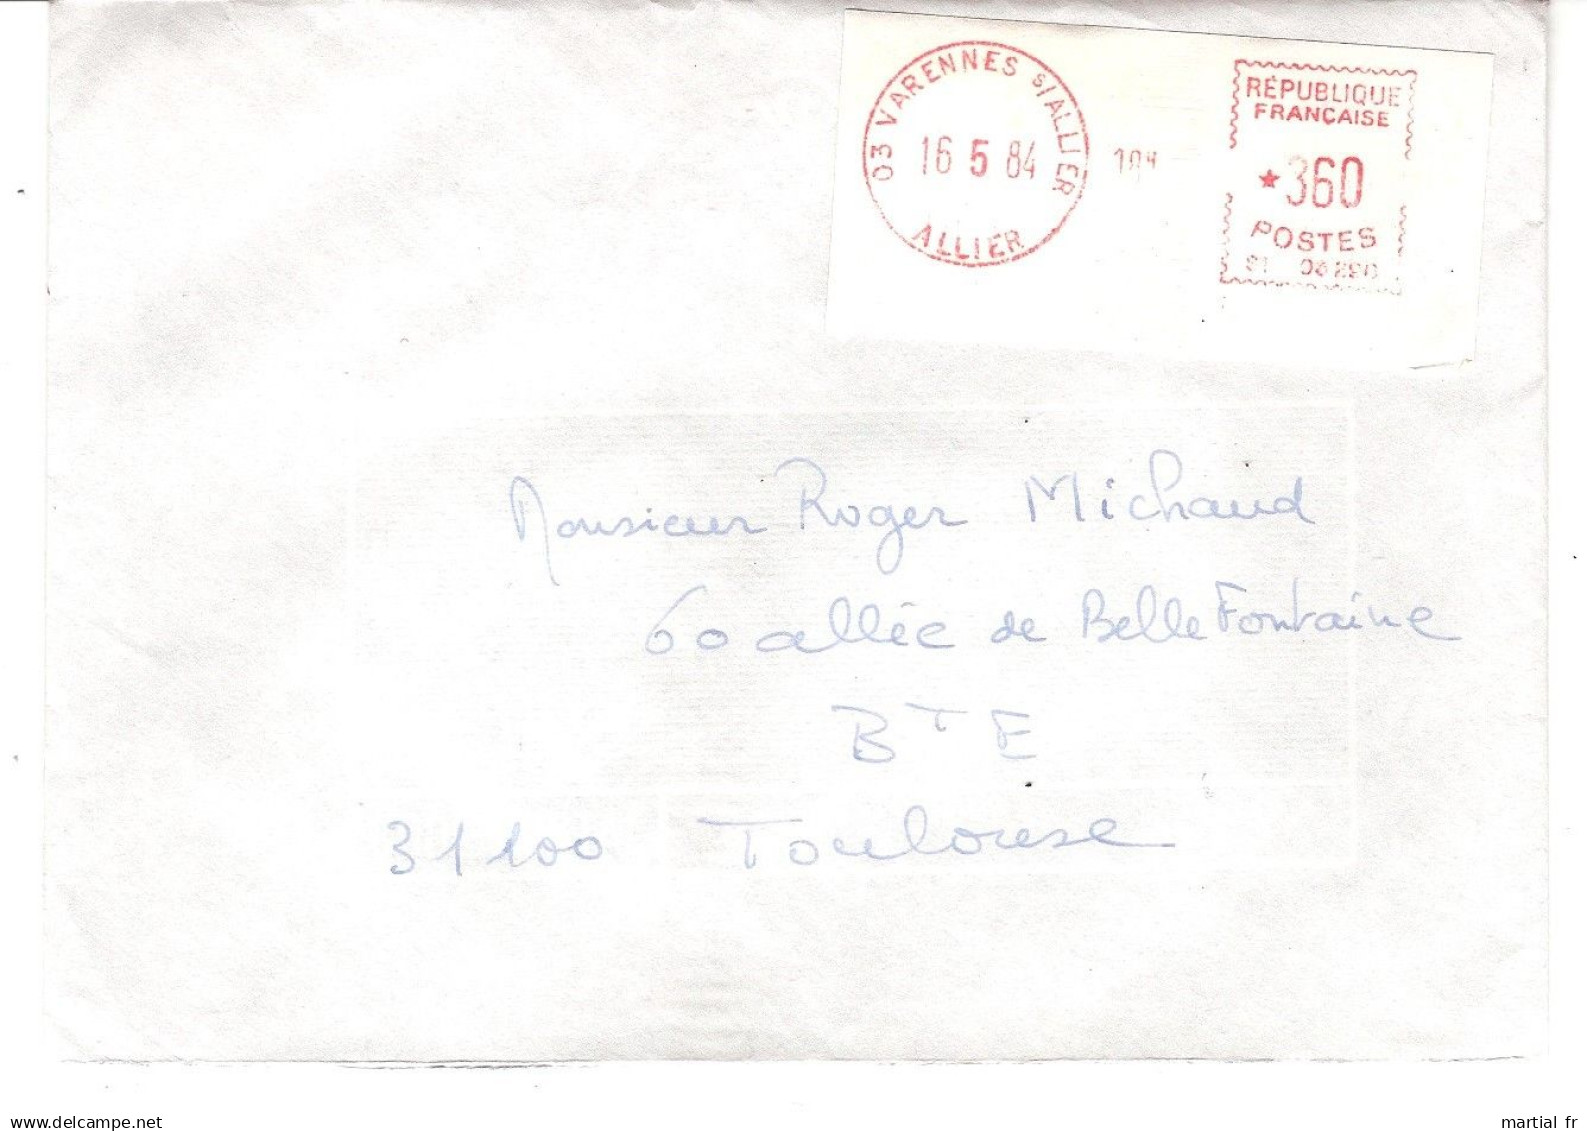 03 VARENNES s/ALLIER
16 5 84
ALLIER
RÉPUBLIQUE
FRANÇAISE
★360
POSTES
Monsieur Roger Michaud
60 allée de Belle Fontaine
Bt E
31100 Toulouse
www.delcampe.net
martial fr